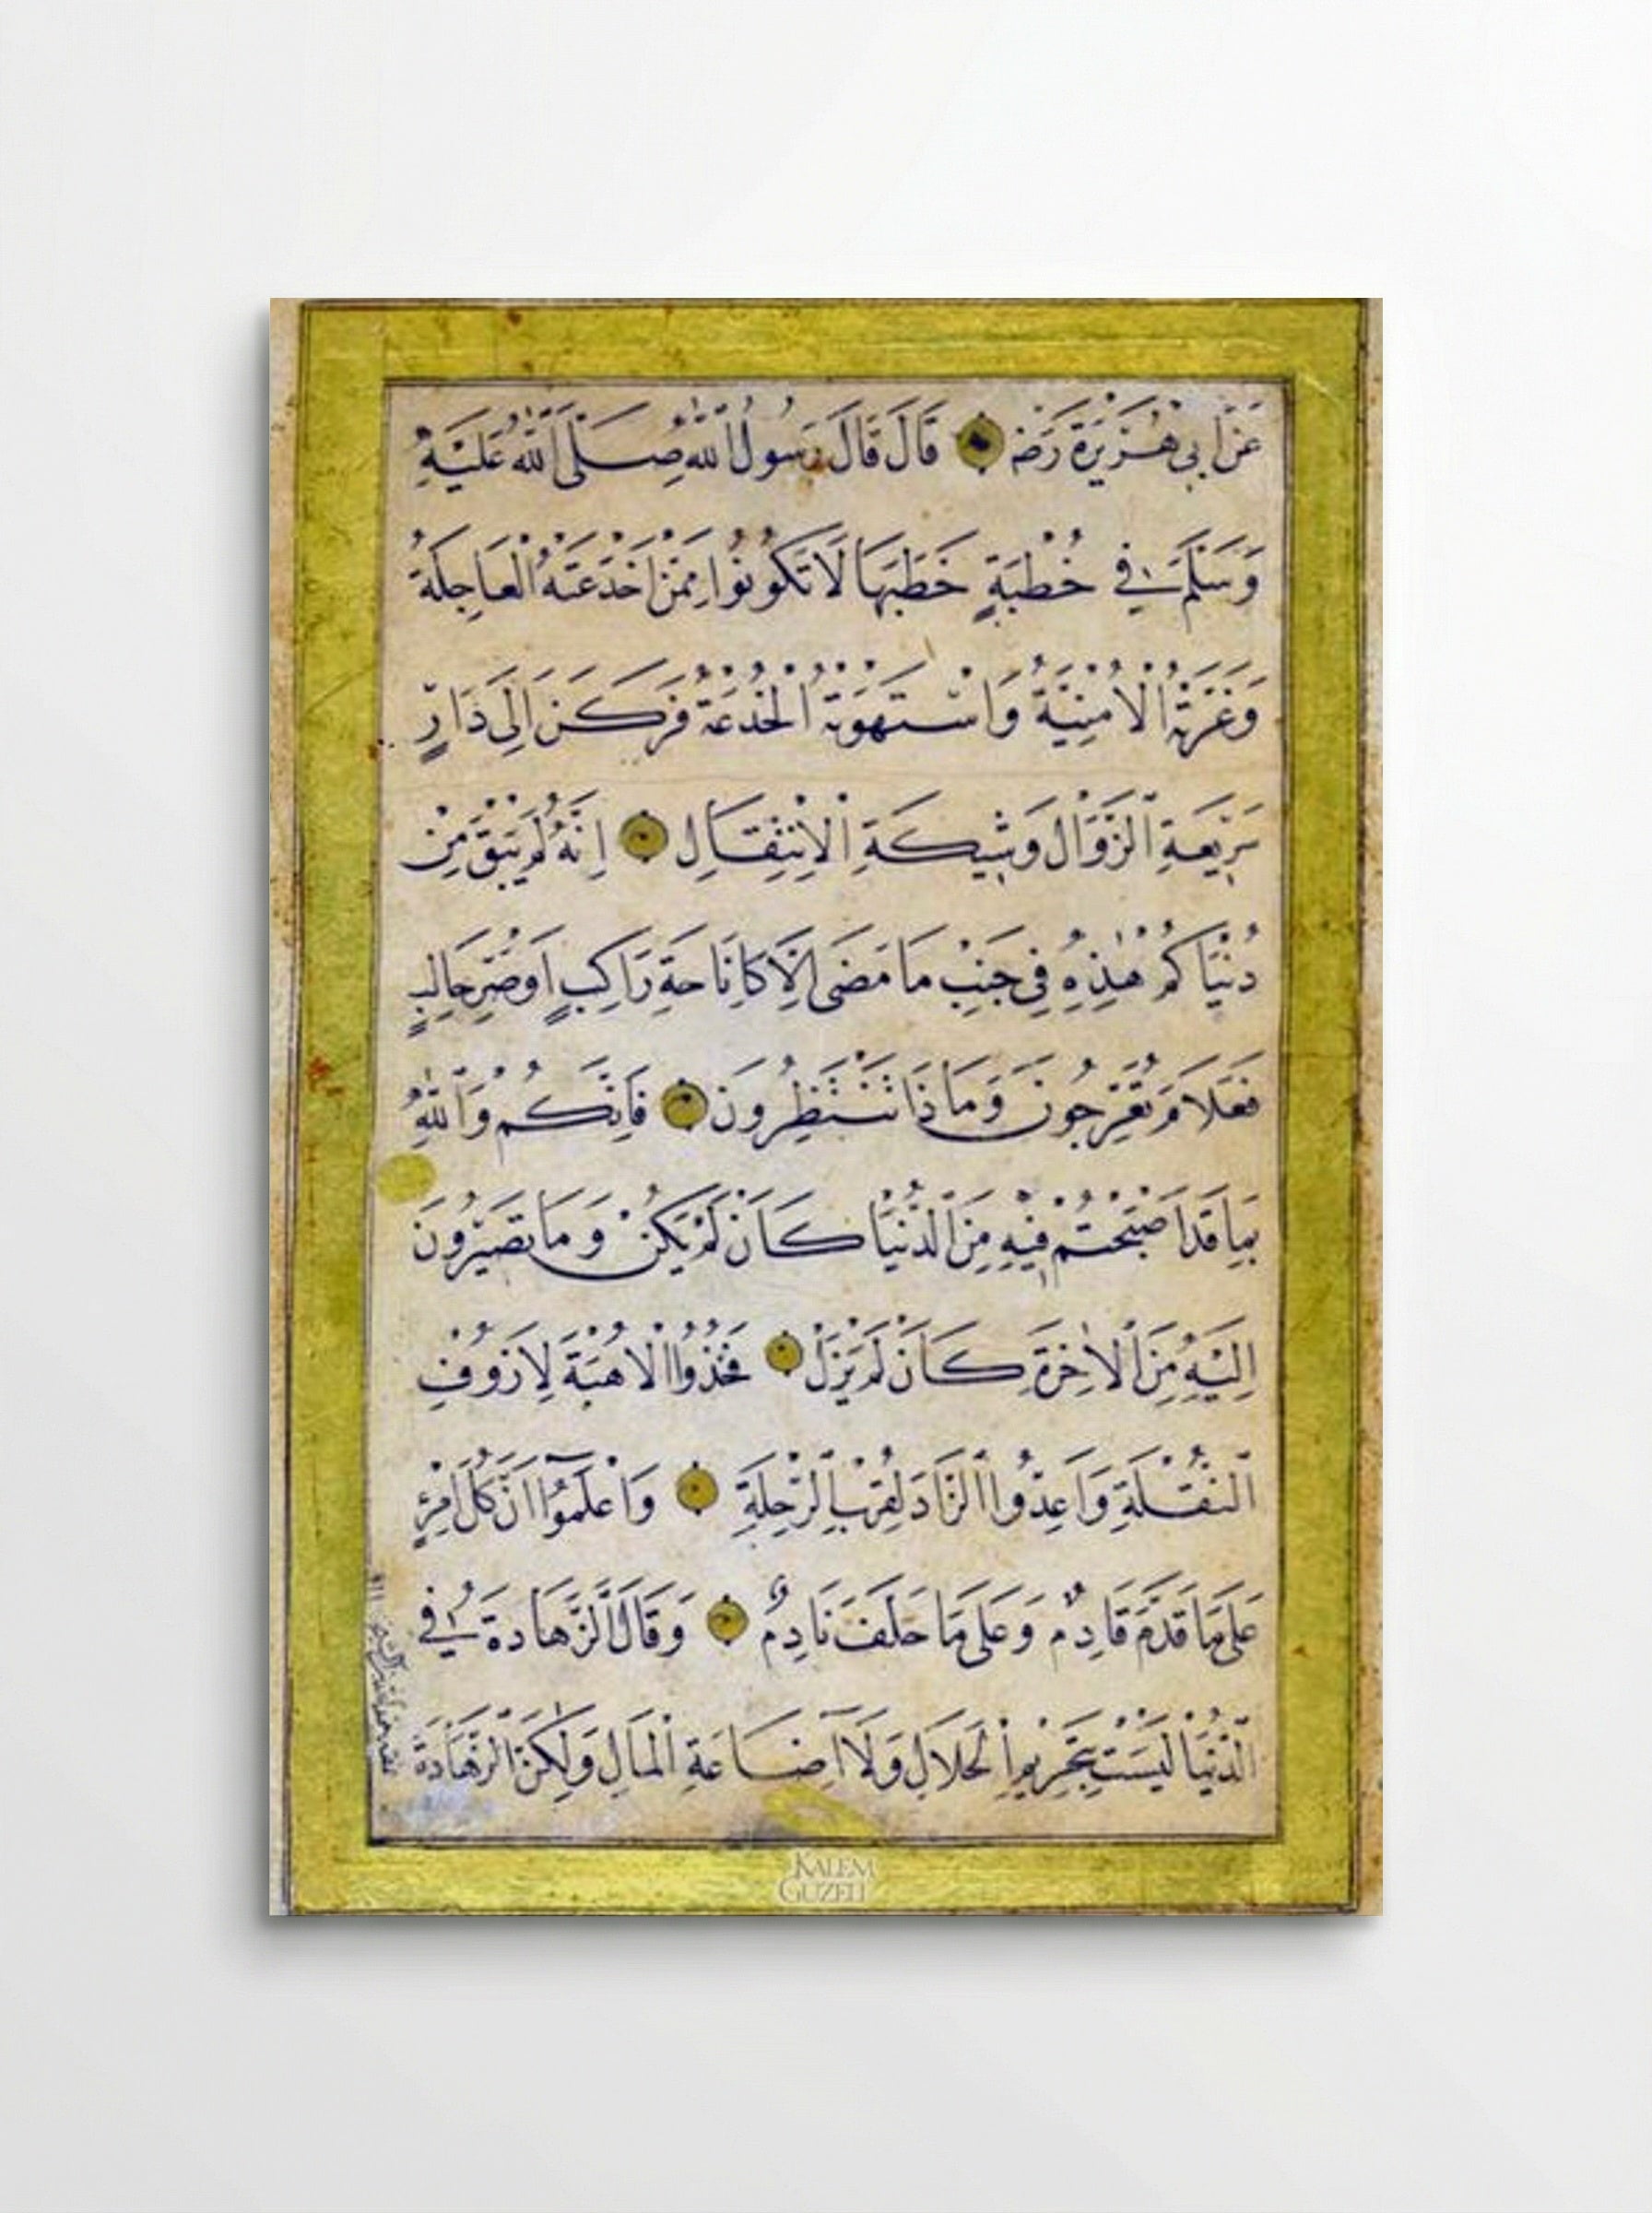 عَنْ اَبِى هُرَيْرَةَ رَضْ قَالَ قَالَ رَسُولُ اللّٰهِ صَلَّى اللّٰهُ عَلَيْهِ
وَسَلَّمَ فِي خُطْبَةٍ خَطَبَهَا لَا تَكُونُوا مِمَّنْ خَدَعَتْهُ الْعَاجِلَةُ
وَغَرَّتْهُ الْاُمْنِيَّةُ وَاسْتَهْوَتْهُ الْخُدْعَةُ فَرَكَنَ اِلَى دَارٍ
سَرِيعَةِ الزَّوَالِ وَشِيكَةِ الْاِنْتِقَالِ اِنَّهُ لَمْ يَبْقَ مِنْ
دُنْيَاكُمْ هٰذِهِ فِى جَنْبِ مَا مَضَى اِلَّا كَاِنَاخَةِ رَاكِبٍ اَوْ صَرِّ حَالِبٍ
فَعَلَامَ تُعَرِّجُونَ وَمَاذَا تَنْتَظِرُونَ فَاِنَّكُمْ وَاللّٰهِ
بِمَا قَدْ اَصْبَحْتُمْ فِيهِ مِنَ الدُّنْيَا كَاَنْ لَمْ يَكُنْ وَمَا تَصِيرُونَ
اِلَيْهِ مِنَ الْاٰخِرَةِ كَاَنْ لَمْ يَزَلْ فَخُذُوا الْاُهْبَةَ لِاَزُوفِ
النُّقْلَةِ وَاَعِدُّوا الزَّادَ لِقُرْبِ الرِّحْلَةِ وَاعْلَمُوٓا اَنَّ كُلَّ امْرِئٍ
عَلَى مَا قَدَّمَ قَادِمٌ وَعَلَى مَا خَلَّفَ نَادِمٌ وَقَالَ الزَّهَادَةُ فِي
الدُّنْيَا لَيْسَتْ بِتَحْرِيمِ الْحَلَالِ وَلَٓا اِضَاعَةِ الْمَالِ وَلٰكِنَّ الزَّهَادَةَ
KALEM
GÜZELİ